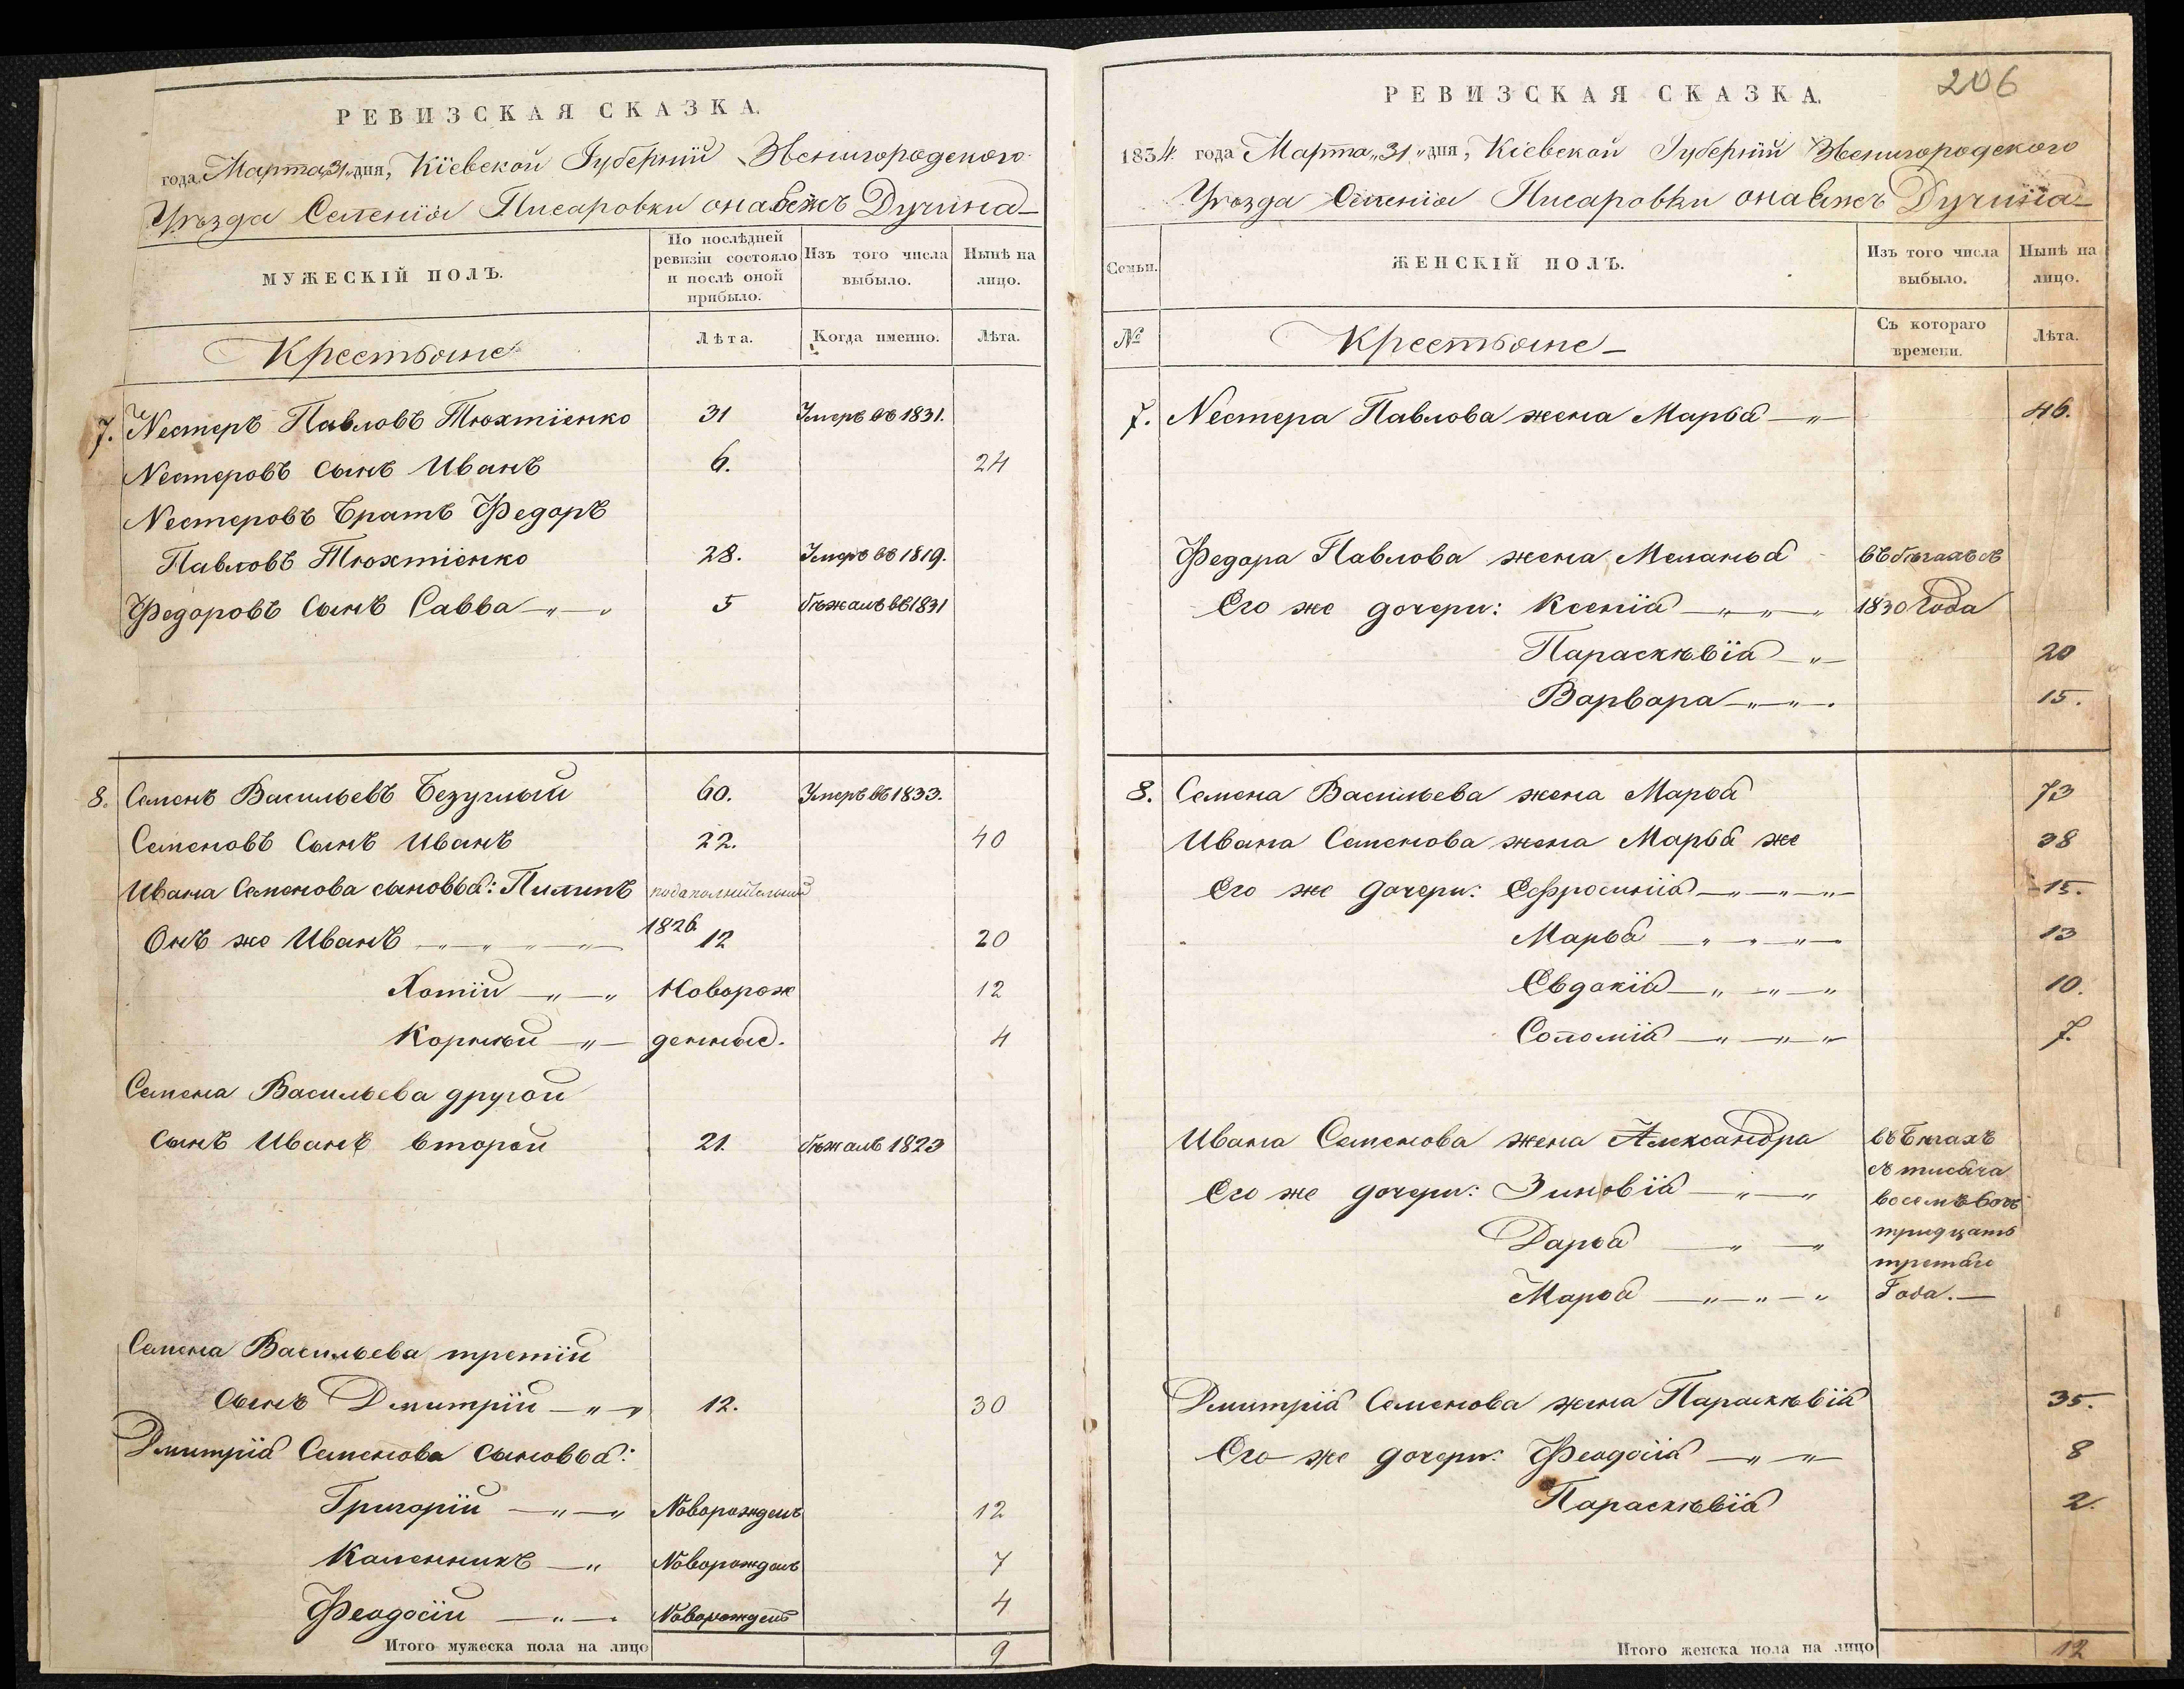 РЕВИЗСКАЯ СКАЗКА.
года Марта „31„ дня, Кіевской Губерніи Звенигородского
Уѣзда Селенія Писаровки онабежъ Дучина
МУЖЕСКІЙ ПОЛЪ.
По послѣдней ревизіи состояло и послѣ оной прибыло.
Изъ того числа выбыло.
Нынѣ на лицо.
Крестьяне
Лѣта.
Когда именно.
Лѣта.
7. Нестеръ Павловъ Тюхтіенко 31 Умеръ въ 1831.
Нестеровъ сынъ Иванъ 6. 24
Нестеровъ братъ Федоръ
Павловъ Тюхтіенко 28. Умеръ въ 1819.
Федоровъ сынъ Савва 5 бѣжалъ въ 1831
8. Семенъ Васильевъ Безуглый 60. Умеръ въ 1833.
Семеновъ Сынъ Иванъ 22. 40
Ивана Семенова сыновья: Пилипъ
1826
Онъ же Иванъ 12 20
Хотій Новорож 12
Корнѣй денные. 4
Семена Васильева другой
сынъ Иванъ второй 21. бѣжалъ 1823
Семена Васильева третій
Сынъ Дмитрій 12. 30
Дмитрія Семенова сыновья:
Григорій Новорожденъ 12
Каленникъ Новорожденъ 7
Феодосій Новорожденъ 4
Итого мужеска пола на лицо 9
206
РЕВИЗСКАЯ СКАЗКА.
1834 года Марта „31„ дня, Кіевской Губерніи Звенигородского
Уѣзда Селенія Писаровки онабежъ Дучина
Семьи.
ЖЕНСКІЙ ПОЛЪ.
Изъ того числа выбыло.
Нынѣ на лицо.
№
Крестьяне
Съ котораго времени.
Лѣта.
7. Нестера Павлова жена Марья 46.
Федора Павлова жена Меланья въ бѣгахъ съ
Его же дочери: Ксенія 1830 Года
Параскѣвія 20
Варвара 15.
8. Семена Васильева жена Марья 73
Ивана Семенова жена Марья же 38
Его же дочери: Ефросинія 15.
Марья 13
Евдокія 10.
Соломія 7.
Ивана Семенова жена Александра въ бѣгахъ
съ тисяча
Его же дочери: Зиновія восемьсотъ
Дарья тридцать
третяго
Марья Года.
Дмитрія Семенова жена Параскѣвія 35.
Его же дочери: Феодосія 8
Параскѣвія 2.
Итого женска пола на лицо 12